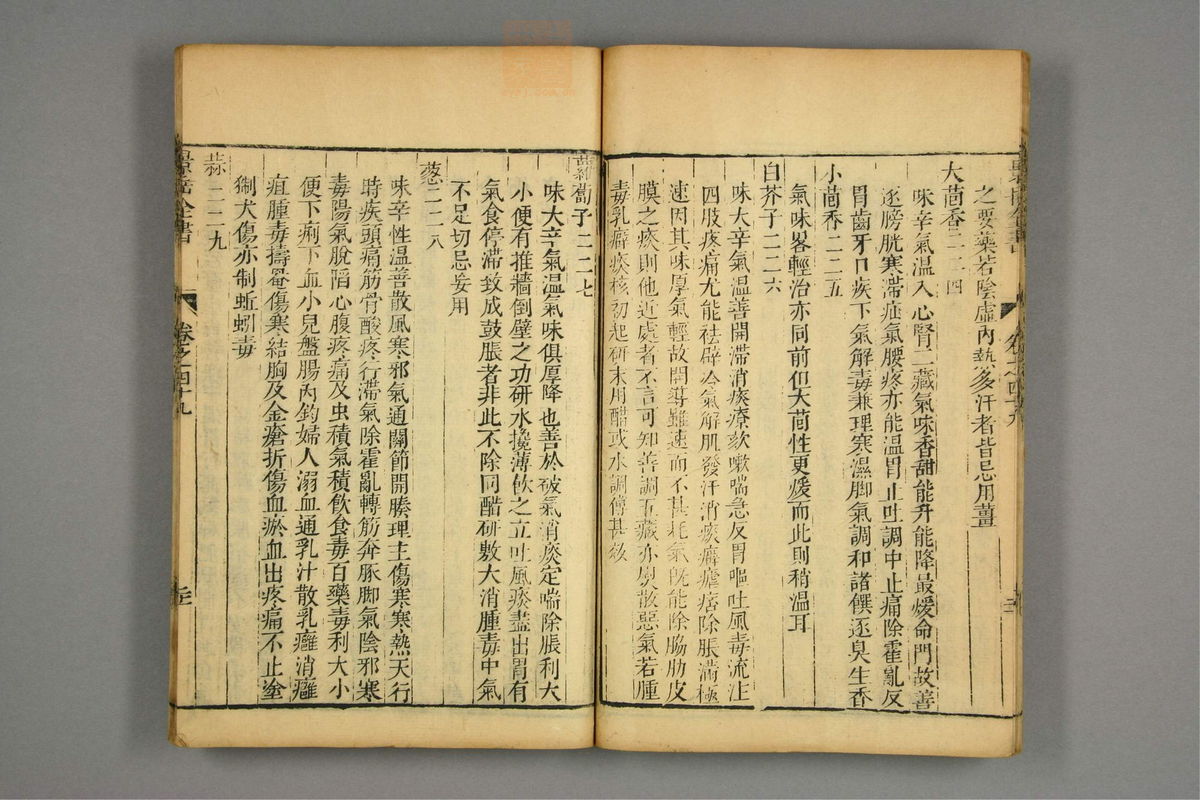 之要藥若陰虛內熱多汗者皆忌用薑
大茴香二二四
味辛氣温入心腎二藏氣味香甜能升能降最煖命門故善
逐膀胱寒滯疝氣腰疼亦能温胃止吐調中止痛除霍亂反
胃齒牙口疾下氣解毒兼理寒濕脚氣調和諸饌逐臭生香
小茴香二二五
氣味畧輕治亦同前但大茴性更煖而此則稍温耳
白芥子二二六
味大辛氣温善開滯消痰療欬嗽喘急反胃嘔吐風毒流注
四肢疼痛尤能祛辟冷氣解肌發汗消痰癖瘧痞除脹滿極
速因其味厚氣輕故開導雖速而不甚耗氣旣能除脇肋皮
膜之痰則他近處者不言可知善調五藏亦熨散惡氣若腫
毒乳癖痰核初起研末用醋或水調傅甚效
蘿蔔子二二七
味大辛氣温氣味俱厚降也善於破氣消痰定喘除脹利大
小便有推墻倒壁之功研水攙薄飲之立吐風痰盡出胃有
氣食停滯致成鼓脹者非此不除同醋研敷大消腫毒中氣
不足切忌妄用
葱二二八
味辛性温善散風寒邪氣通關節開腠理主傷寒寒熱天行
時疾頭痛筋骨酸疼行滯氣除霍亂轉筋奔豚脚氣陰邪寒
毒陽氣脫陷心腹疼痛及虫積氣積飲食毒百藥毒利大小
便下痢下血小兒盤腸內釣婦人溺血通乳汁散乳癰消癰
疽腫毒擣罨傷寒結胸及金瘡折傷血瘀血出疼痛不止塗
猘犬傷亦制蚯蚓毒
蒜二二九
景岳全書
卷之四十九